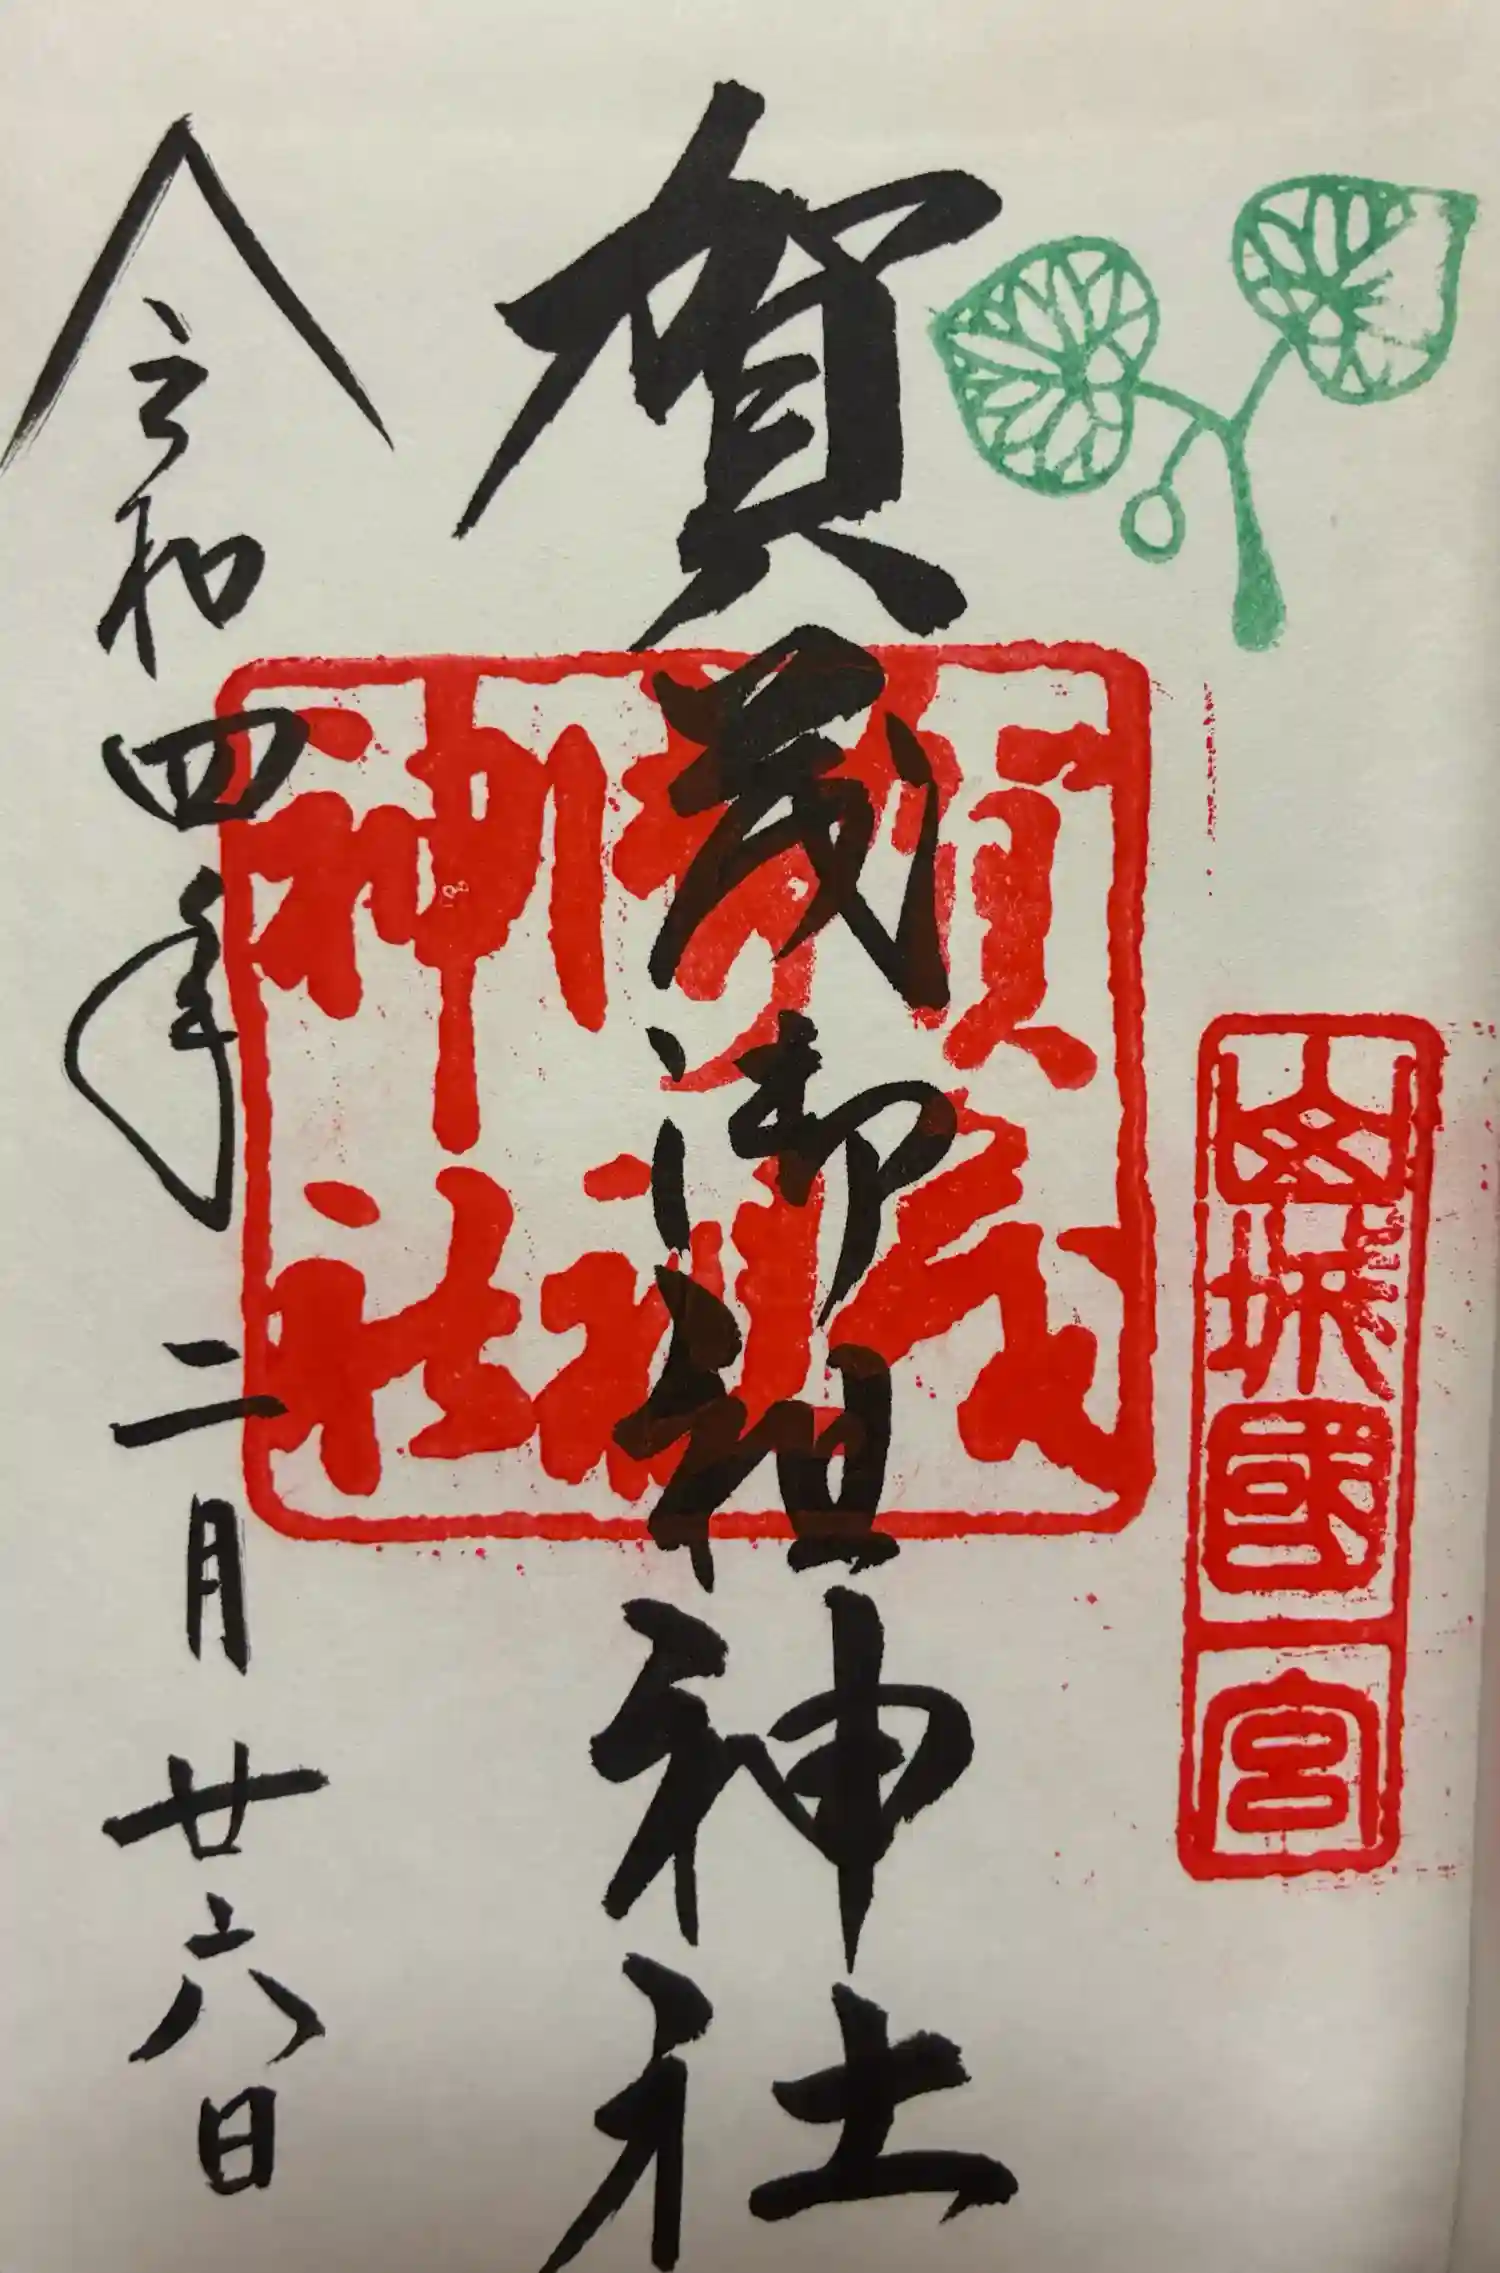 山城國一宮
賀茂御祖神社
賀茂御祖神社
令和四年二月廿六日